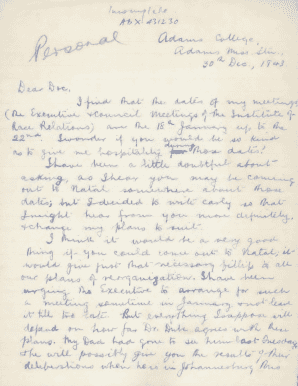 Incomplete
ABX 431230
Personal
Adams College,
Adams Mission Stn.
30th Dec., 1943
Dear Doc.,
I find that the dates of my meetings
(the Executive & Council Meetings of the Institute of
Race Relations) are the 15th January up to the
22nd. I wonder if you would be so kind
as to give me hospitality during those dates?
I have been a little doubtful about
asking, as I hear you may be coming
out to Natal somewhere about those
dates, but I decided to write early so that
I might hear from you more definitely,
& change my plans to suit.
I think it would be a very good
thing if you could come out to Natal; it
would give just that necessary fillip to all
our plans of reorganisation. I have been
urging the Executive to arrange for such
a meeting sometime in January & not leave
it till too late. But everything I suppose will
depend on how far Dr. Dube agrees with these
plans. My Dad had gone to see him last Tuesday
& he will possibly give you the results of their
deliberations when here in Johannesburg